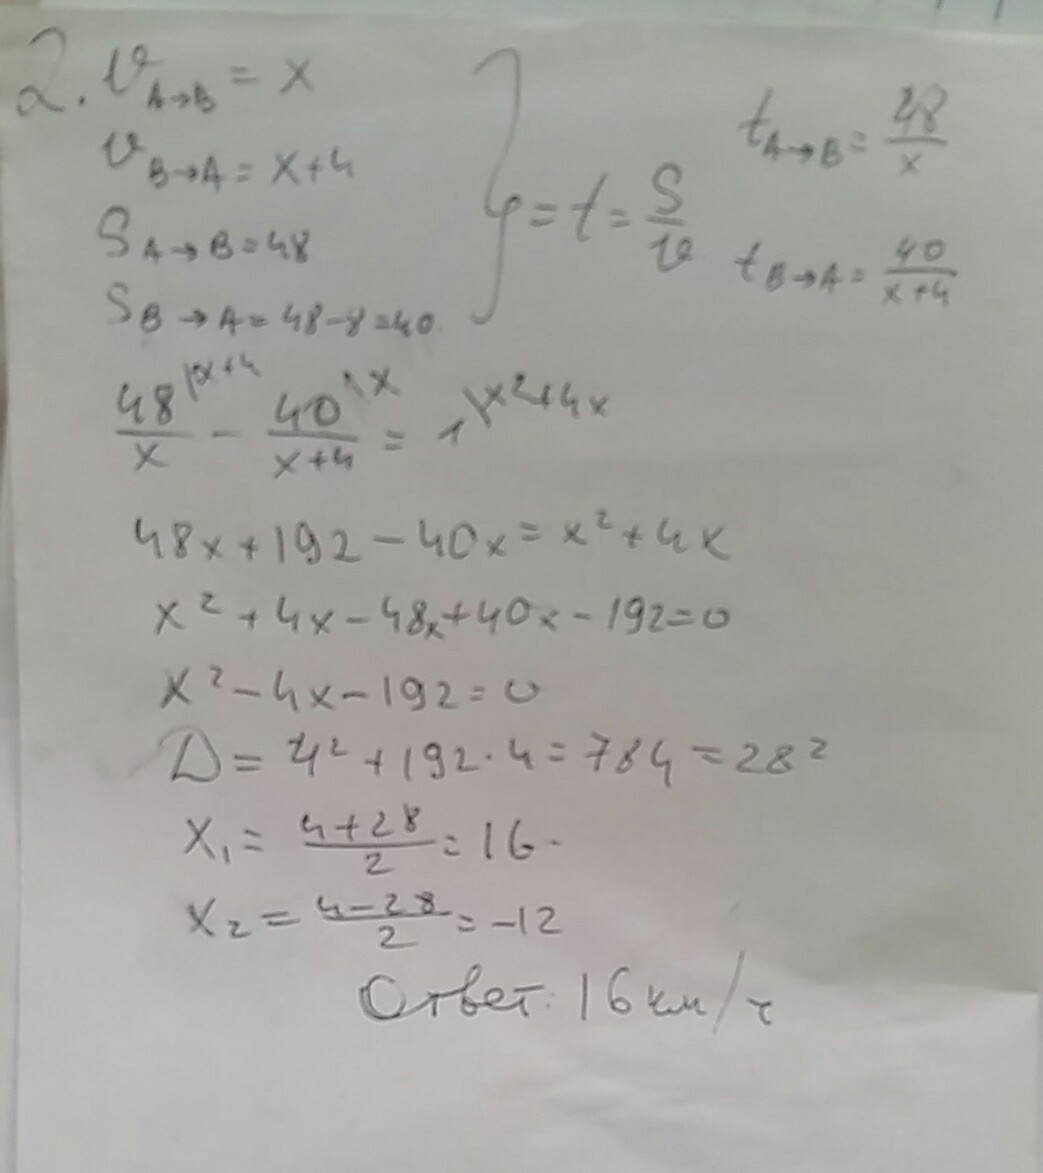 2. υ A→B = x
υ B→A = x+4
S A→B = 48
S B→A = 48-8=40
} => t = S/υ
t A→B = 48/x
t B→A = 40/x+4
48/x |x+4 - 40/x+4 |x = 1 |x²+4x
48x+192-40x=x²+4x
x²+4x-48x+40x-192=0
x²-4x-192=0
D=4²+192·4=784=28²
x₁=4+28/2=16
x₂=4-28/2=-12
Ответ: 16км/ч